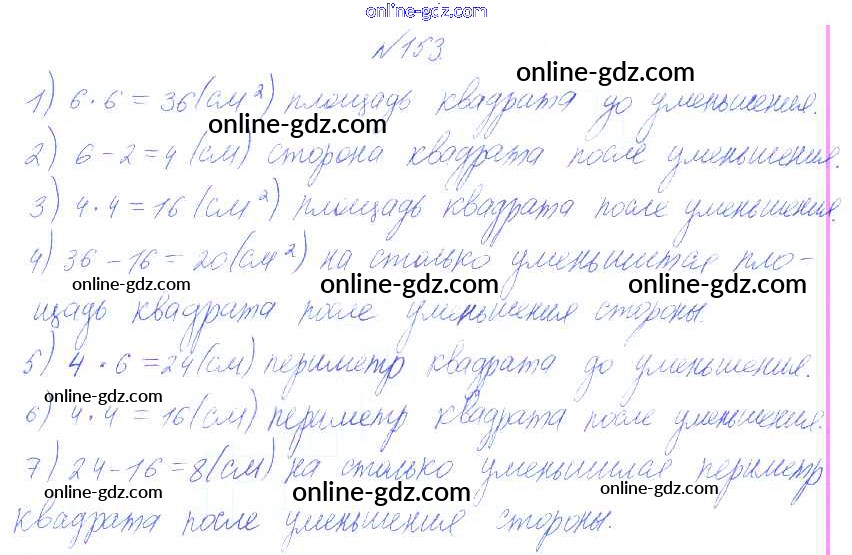 online-gdz.com
№153.
online-gdz.com
1) 6·6=36(см²) площадь квадрата до уменьшения.
online-gdz.com
2) 6-2=4(см) сторона квадрата после уменьшения.
3) 4·4=16(см²) площадь квадрата после уменьшения.
4) 36-16=20(см²) на столько уменьшится пло-
online-gdz.com online-gdz.com online-gdz.com
щадь квадрата после уменьшения стороны.
5) 4·6=24(см) периметр квадрата до уменьшения.
online-gdz.com online-gdz.com online-gdz.com
6) 4·4=16(см) периметр квадрата после уменьшения.
7) 24-16=8(см) на столько уменьшилася периметр
online-gdz.com online-gdz.com online-gdz.com
квадрата после уменьшения стороны.